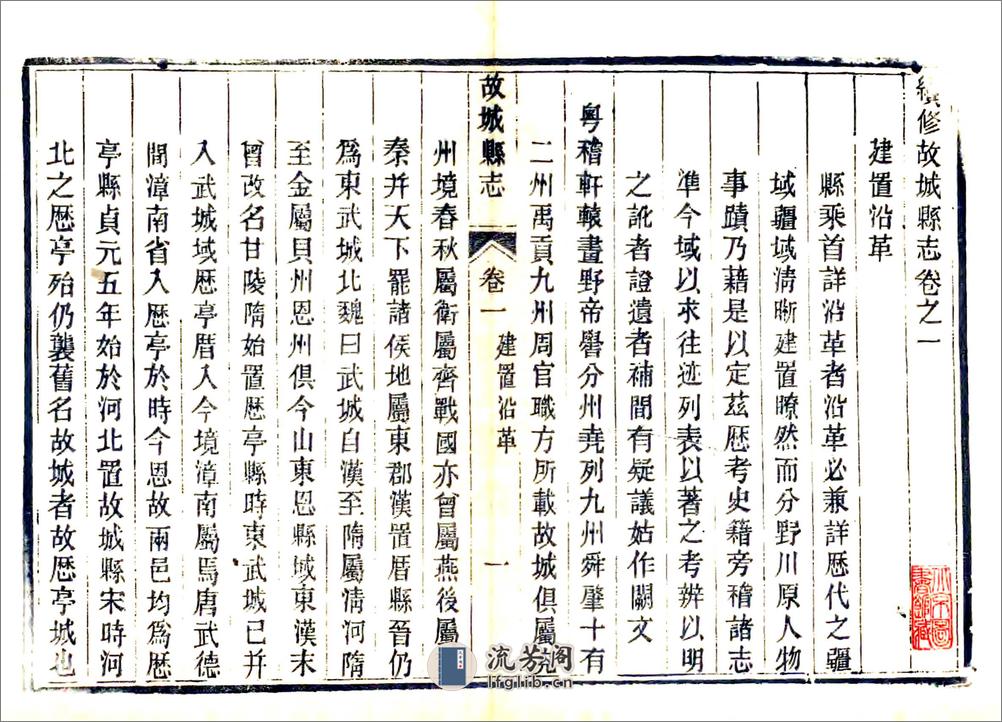 續修故城縣志卷之一
建置沿革
縣乘首詳沿革者沿革必兼詳歷代之疆
域疆域清晰建置瞭然而分野川原人物
事蹟乃藉是以定茲歷考史籍旁稽諸志
準今域以求往迹列表以著之考辨以明
之訛者證遺者補間有疑議姑作闕文
粤稽軒轅畫野帝嚳分州堯列九州舜肇十有
二州禹貢九州周官職方所載故城俱屬兖
故城縣志
卷一
建置沿革
一
州境春秋屬衛屬齊戰國亦曾屬燕後屬
秦并天下罷諸侯地屬東郡漢置厝縣晉仍
爲東武城北魏曰武城自漢至隋屬清河隋
至金屬貝州恩州俱今山東恩縣域東漢末
曾改名甘陵隋始置歷亭縣時東武城已并
入武城域歷亭厝入今境漳南屬焉唐武德
間漳南省入歷亭於時今恩故兩邑均爲歷
亭縣貞元五年始於河北置故城縣宋時河
北之歷亭殆仍襲舊名故城者故歷亭城也
流芳阁
lfglib.cn